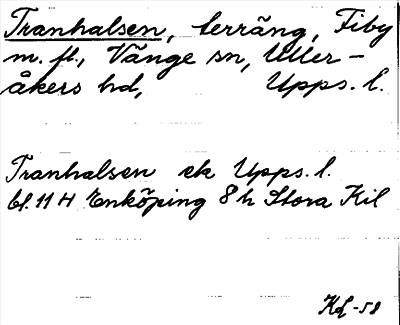 Tranhalsen, terräng, Fiby
m. fl., Vänge sn, Uller-
åkers hd, Upps. l.
Tranhalsen ek Upps. l.
bl. 11 H Enköping 8 h Stora Kil
Kd-58